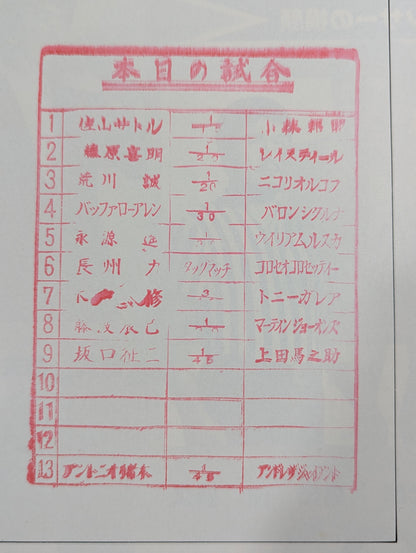 本日の試合
1 佐山サトル 小林邦昭
2 藤原喜明 1/20 レイスティール
3 荒川 誠 1/20 ニコリオルコフ
4 バッファローアレン 1/30 バロンシクルナ
5 永源 遥 ウイリアムルスカ
6 長州 力 タッグマッチ コロセオコロセッティー
7 修 トニーガレア
8 藤波辰巳 マーティンジョーンズ
9 坂口征二 1/45 上田馬之助
10
11
12
13 アントニオ猪木 1/45 アンドレザジャイアント